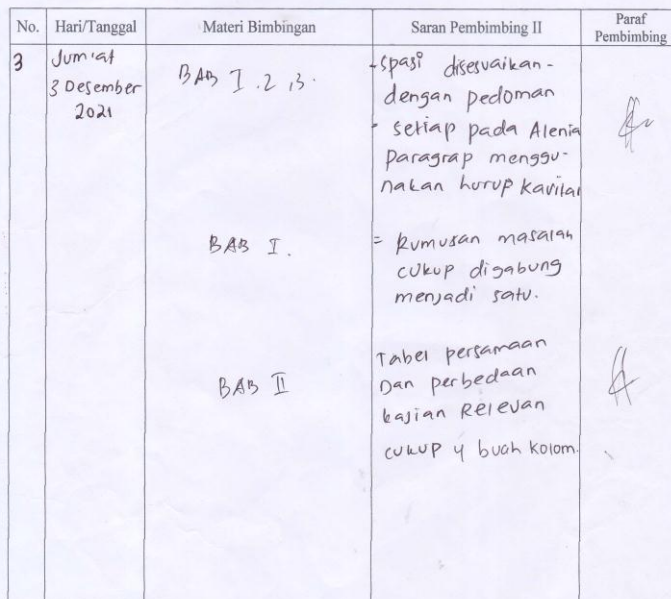 No. Hari/Tanggal Materi Bimbingan Saran Pembimbing II Paraf Pembimbing
3 Jum'at
3 Desember
2021
BAB I . 2 , 3 .
- Spasi disesuaikan -
dengan pedoman
- setiap pada Alenia
paragrap menggu-
nakan hurup Kavital
BAB I .
= Rumusan masalah
cukup digabung
menjadi satu.
BAB II
Tabel persamaan
Dan perbedaan
kajian Relevan
cukup 4 buah kolom.